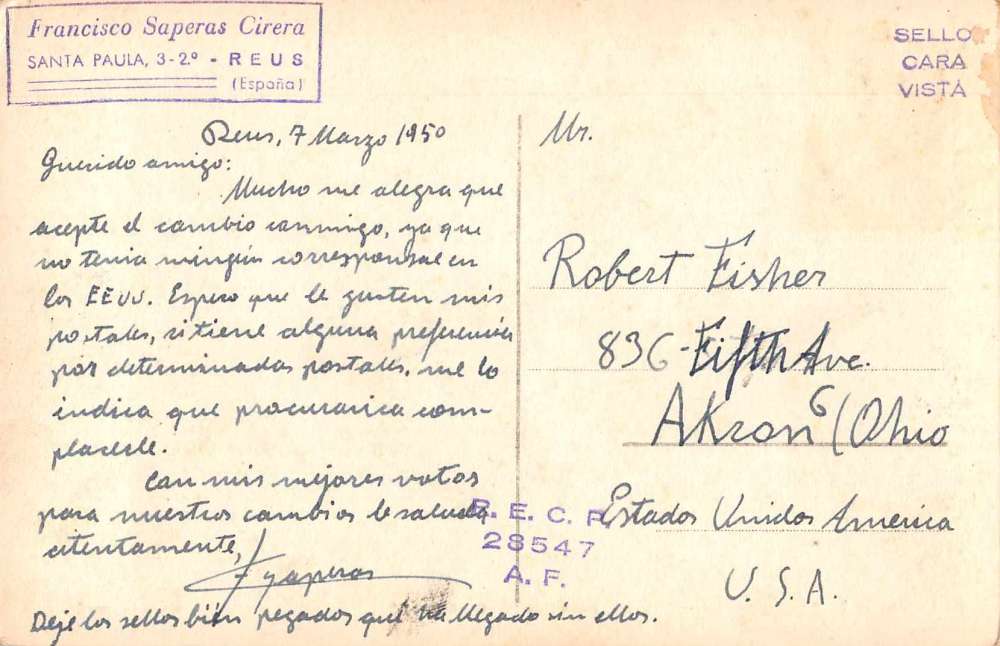 Francisco Saperas Cirera
SANTA PAULA, 3-2.º - REUS
(España)
SELLO
CARA
VISTA
Reus, 7 Marzo 1950
Querido amigo:
Mucho me alegra que
acepte el cambio conmigo, ya que
no tenia ningún corresponsal en
los EEUU. Espero que le gusten mis
postales, si tiene alguna preferencia
por determinadas postales, me lo
indica que procurarica com-
placerle.
Con mis mejores votos
para nuestros cambios le saluda
atentamente,
Fsaperas
Deje los sellos bién pegados que ha llegado sin ellos.
Mr.
Robert Fisher
836-Fifth Ave.
Akron 6 (Ohio
Estados Unidos America
U.S.A.
B. E. C. P.
28547
A. F.